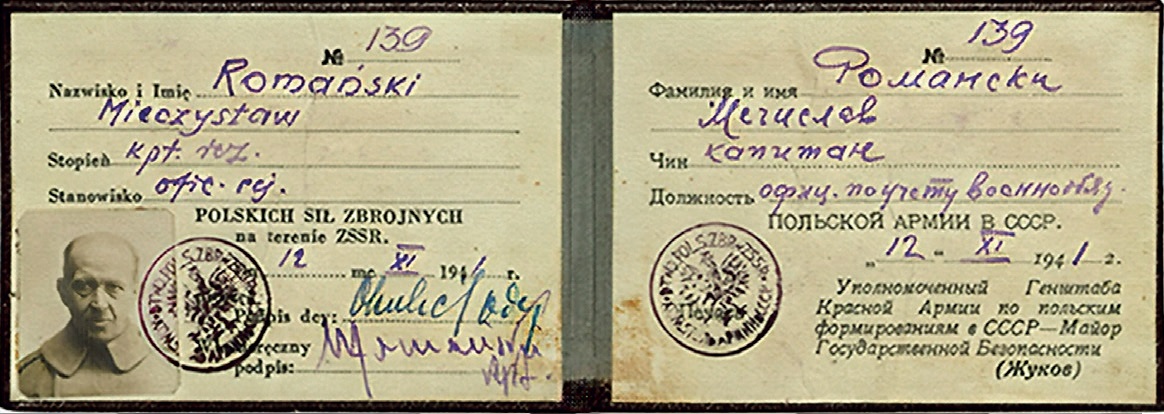 № 139
Nazwisko i Imię Romański
Mieczysław
Stopień kpt. rez.
Stanowisko ofic. rej.
POLSKICH SIŁ ZBROJNYCH
na terenie ZSSR.
12 XI 1941 r.
Podpis
podpis:
№ 139
Фамилия и имя Романски
Мечислав
Чин капитан
Должность офиц. по учету военнообяз.
ПОЛЬСКОЙ АРМИИ В СССР.
„ 12 " XI 1941 г.
Уполномоченный Генштаба
Красной Армии по польским
формированиям в СССР—Майор
Государственной Безопасности
(Жуков)